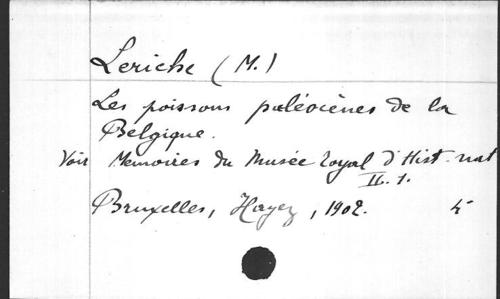 Leriche (M.)
Les poissons paléocènes de la
Belgique.
Voir Memoires du Musée royal d'Hist. nat
II. 1.
Bruxelles, Hayez, 1902. 4°